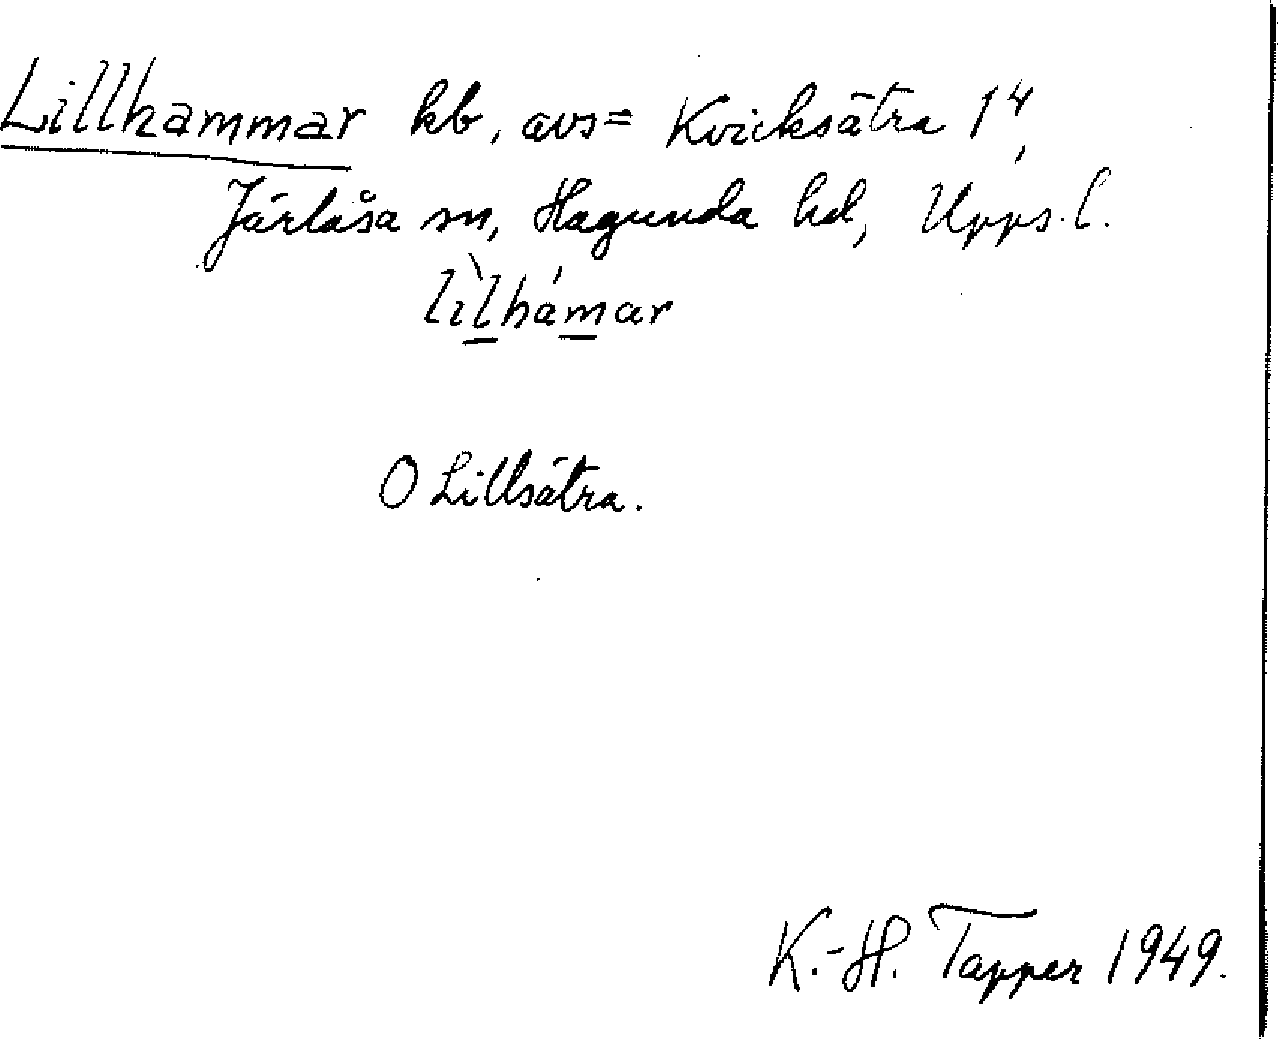 Lillhammar kb, avs= Kvicksätra 1⁴,
Järlåsa sn, Hagunda hd, Upps. l.
lìlhámar
O Lillsätra.
K.-H. Tapper 1949.